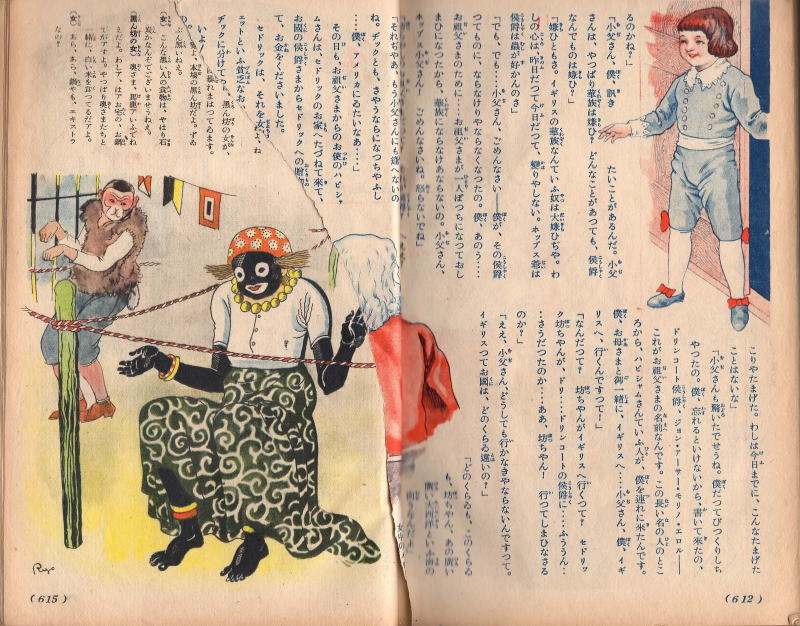 るのかね?」
「小父さん、僕、訊きたいことがあるんだ。小父
さんは、やつぱり華族は嫌ひ? どんなことがあつても、侯爵
なんてものは嫌ひ?」
「嫌ひともさ。イギリスの華族なんていふ奴は大嫌ひぢや。わ
しの心は、昨日だつて今日だつて、變りやしない。ホップス爺は
侯爵は蟲が好かんのさ」
「でも、でも……小父さん、ごめんなさい――僕が、その侯爵
つてものに、ならなけりやならなくなつたの。僕、あのう……
お祖父さまのために……お祖父さまが一人ぼつちになつておし
まひになつたから、華族にならなけあならないの。小父さん、
ホップス小父さん! ごめんなさいね。怒らないでね」
こりやたまげた。わしは今日までに、こんなたまげた
ことはないな」
「小父さんも驚いたでせうね。僕だつてびつくりしち
やつたの。僕、忘れるといけないから、書いて來たの、
ドリンコート侯爵、ジョン・アーサー・モリノ・エロル――
これがお祖父さまの名前なんです。この長い名の人のとこ
ろから、ハビシャムさんていふ人が、僕を連れに來たんです。
僕、お母さまと御一緒に、イギリスへ……小父さん、僕、イギ
リスへ、行くんですつて!」
「なんだつて? 坊ちやんがイギリスへ行くつて? セドリッ
ク坊ちやんが、ドリ……ドリンコートの侯爵に……ふううん…
…さうだつたのか……ああ、坊ちやん! 行つてしまひなさる
のか?」
「ええ、小父さん、どうしても行かなきやならないんですつて。
イギリスつてお國は、どのくらゐ遠いの?」
「どのくらゐも、このくらゐ
も、坊ちやん、あの廣い
(612)
「それぢやあ、もう小父さんにも逢へないの
ね。ヂックとも、さやうならになつちやふし
……僕、アメリカにゐたいなあ……」
その日も、お祖父さまからのお使のハビシャ
ムさんは、セドリックのお家へたづねて來て、
お國の侯爵さまからセドリックへの贈
て、お金をくださいました。
セドリックは、それを
エットといふ貧乏なお
ヂックに分けて
いよ!
暴れまはつてゐます。
黒ん坊の女が、
集よ、本場の黒ん坊だよ、ずゐ
ぶん黒いねえ。
(女)こんな黒い人の食物は、やはり石
炭かなんぞでございませうねえ。
(黒ん坊の女)奥さま、馬鹿いふでね
えだよ。わしアはアお宅の、お鍋
でがアすよ。やつぱり奥さまたちと
一緒に、白い米を食つてるだアよ。
(女)あら、あら、鍋やも、エキストラ
なの?
Ryo
(615)